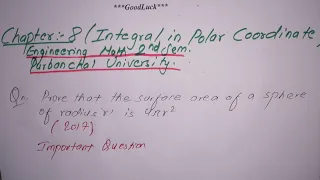 ***GoodLuck***
Chapter:- 8 (Integral in Polar Coordinate)
Engineering Math 2nd Sem.
Purbanchal University.
Qn. Prove that the surface area of a sphere
of radius 'r' is 4πr²
(2017)
Important Question